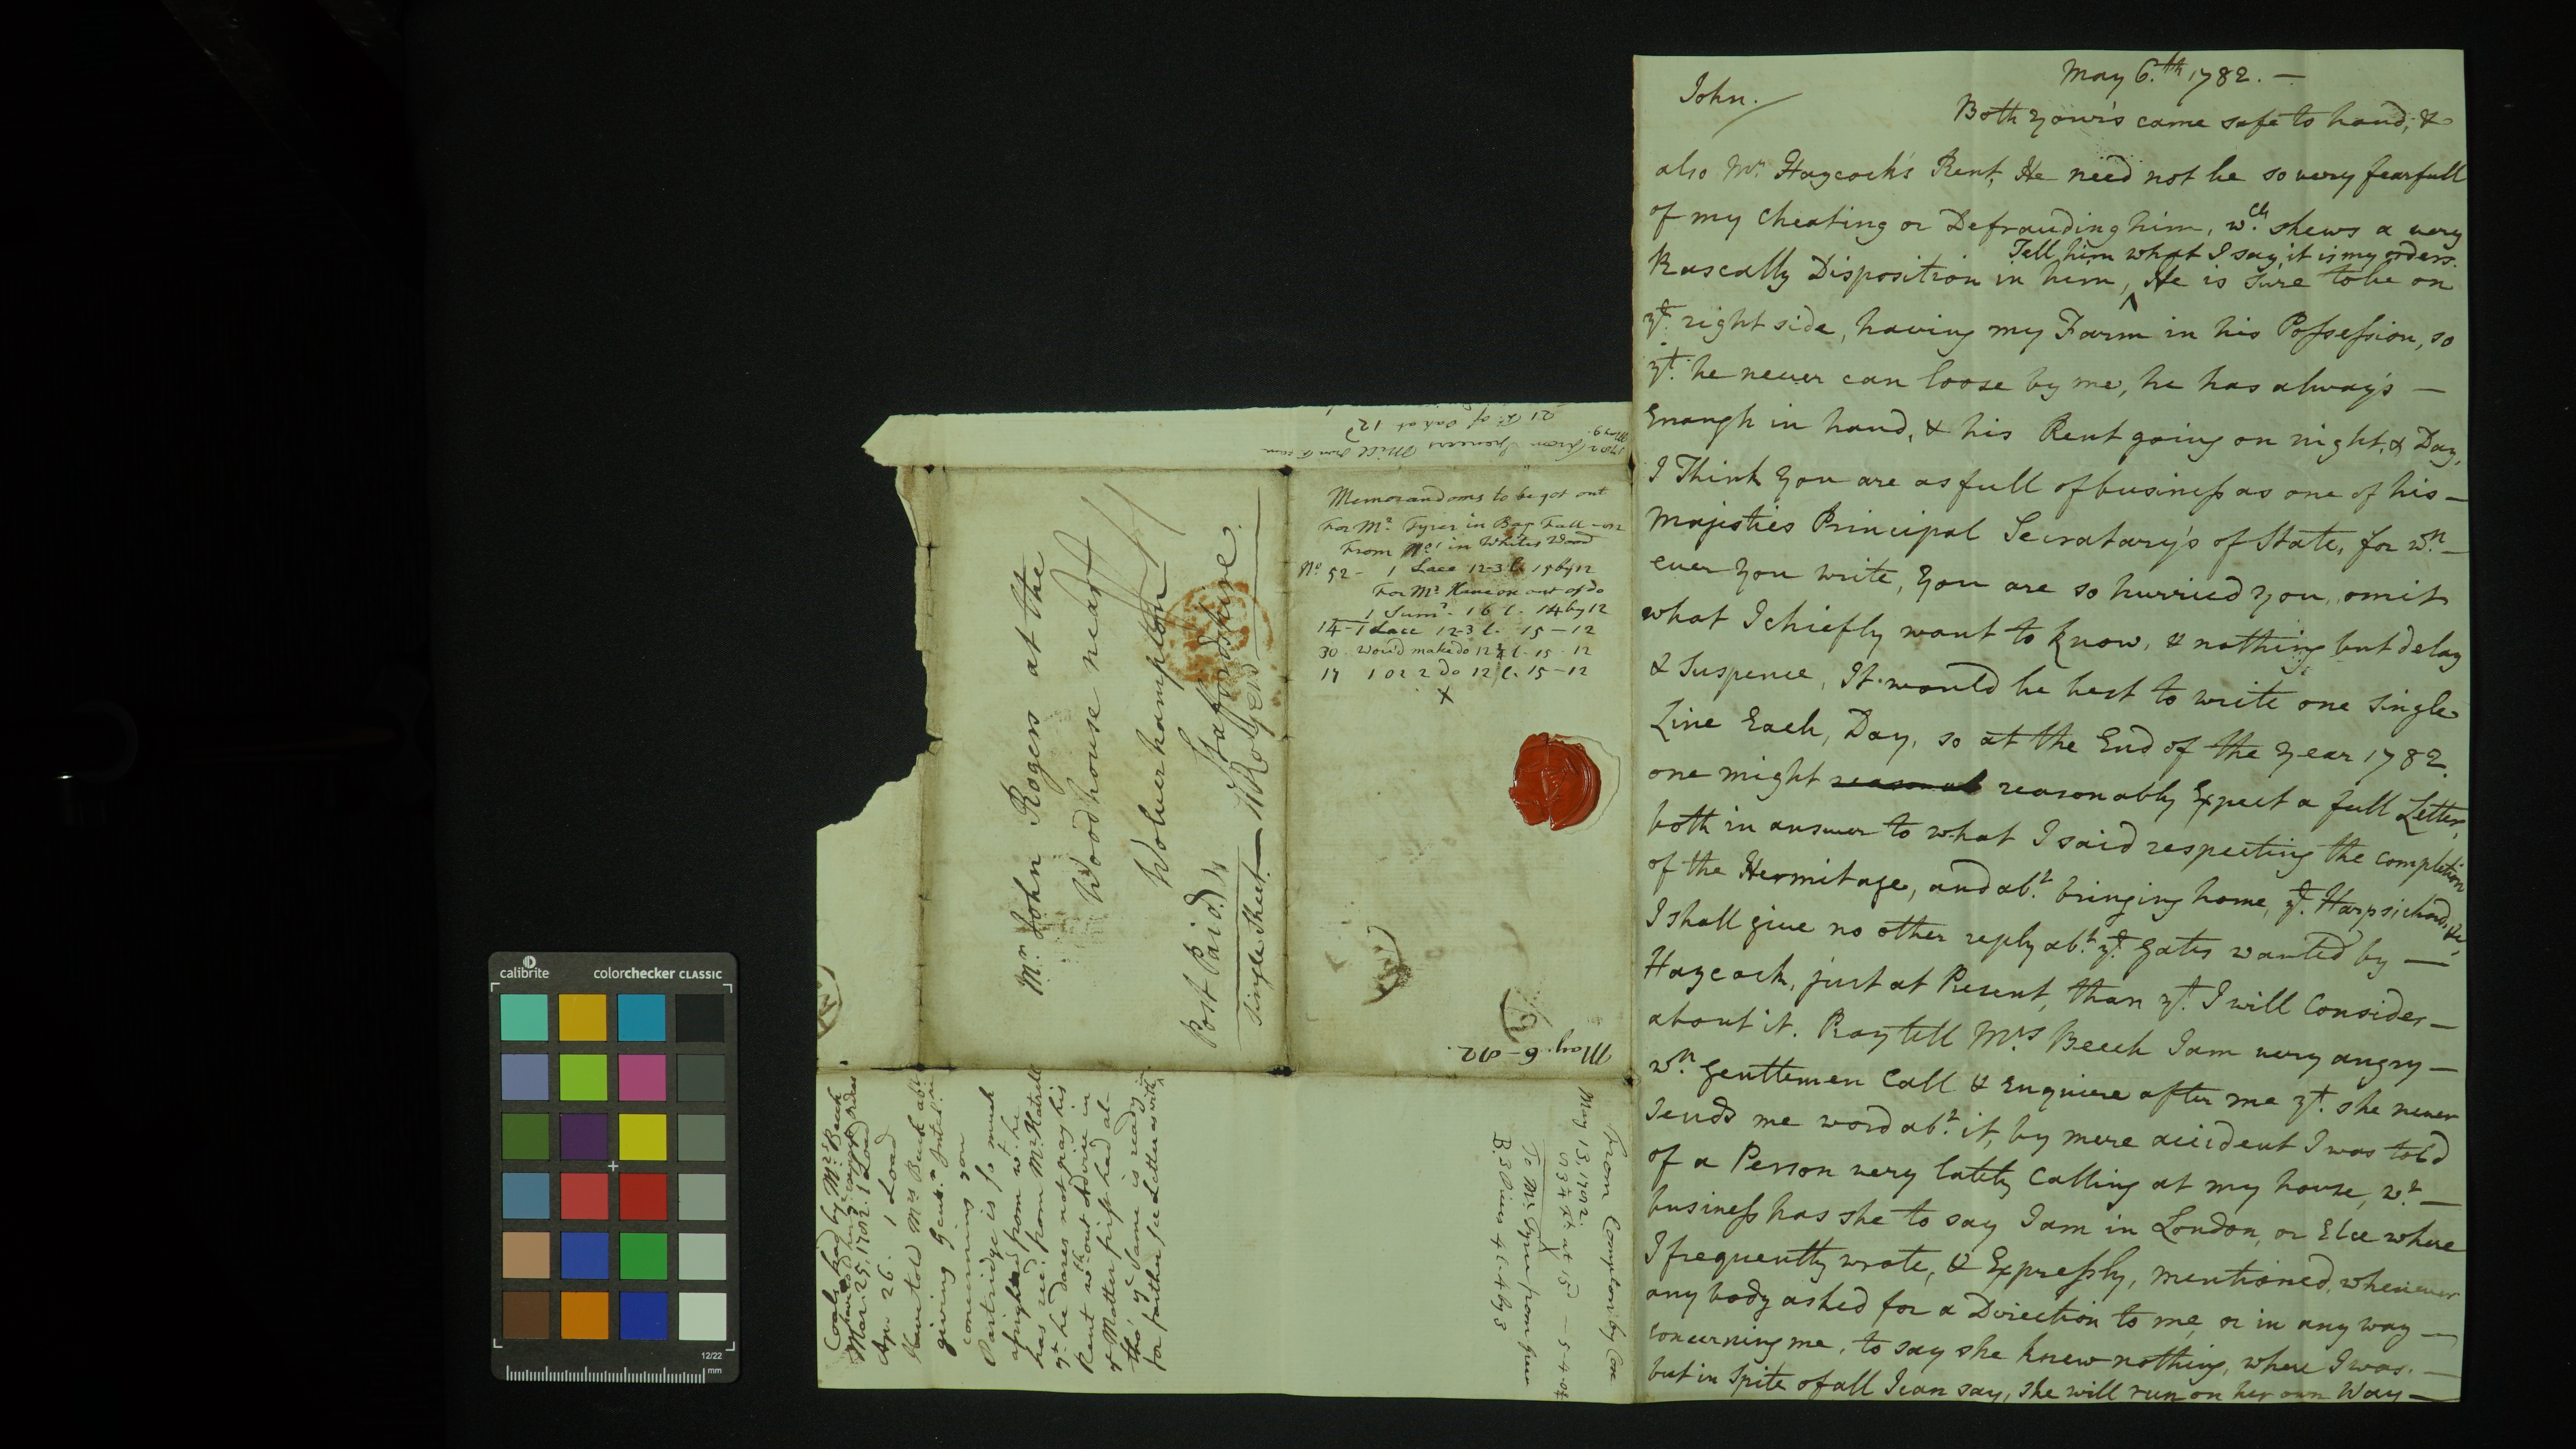 May 6.th 1782. —
John.
Both your's came safe to hand, &
also Mr. Haycock's Rent, He need not be so very fearfull
of my Cheating or Defrauding him, w.ch shews a very
Tell him what I say, it is my orders.
Rascally Disposition in him, ^ He is sure to be on
ye. right side, having my Farm in his Possession, so
yt. he never can loose by me, he has always —
Enough in hand, & his Rent going on night, & Day,
I Think you are as full of business as one of his —
Majesties Principal Secratary's of State, for w.n —
ever you write, you are so hurried you omit
what I chiefly want to know, & nothing but delay
& Suspence, It would be best to write one single
Line Each, Day, so at the End of the year 1782.
one might reasonab reasonably Expect a full Letter,
both in answer to what I said respecting the completion
of the Hermitage, and ab.t bringing home, ye. Harpsichord, &c,
I shall give no other reply ab.t ye. Gates wanted by —
Haycock, just at Present, than yt. I will Consider —
about it. Pray tell Mrs Beech I am very angry —
w.n Gentlemen Call & Enquiere after me yt. she never
sends me word ab.t it, by mere accident I was told
of a Person very lately Calling at my house, w.t —
business has she to say I am in London, or Else where
I frequently wrote, & Expressly, mentioned, whenever
any body asked for a Direction to me, or in any way —
concerning me, to say she knew nothing, where I was. —
but in Spite of all I can say, she will run on her own Way —
Memorandoms to be got out
For Mr. Tyrer in Bag Fall - on
From No 1 in Whites Wood
No. 52 - 1 Lace 12-3 l. 15 by 12
For Mr. out of do
1 Sum.r 16 l. 14 by 12
14 - 1 Lace 12-3 l. 15 - 12
30 Wou'd make do 12 l. 15 - 12
17 1 or 2 do 12 l. 15 - 12
X
Mr. John Rogers at the
Woodhouse near
Wolverhampton
Staffordshire.
Post Paid
Single Sheet —
May 9
21 F. of Oak at 12d
May. 6 - 82.
From
May 13, 1782.
To Mr. Tyrer from
53 ft. at 15d — 5-4-0
B. 3 Pines 4 l. 4 by 3
Coals had by Mrs. Beech
Mar. 25, 1782. 1 Load
Apr 26. 1 Load
Have told Mrs Beech abt
giving Gent.n Intel.
concerning you
Partridge is so much
afrighted from wt. he
has rec.d from Mr. Hatrell
yt. he dares not pay his
Rent w.thout Advice in
ye Matter first had al-
tho' ye same is ready
for father see Letter as with